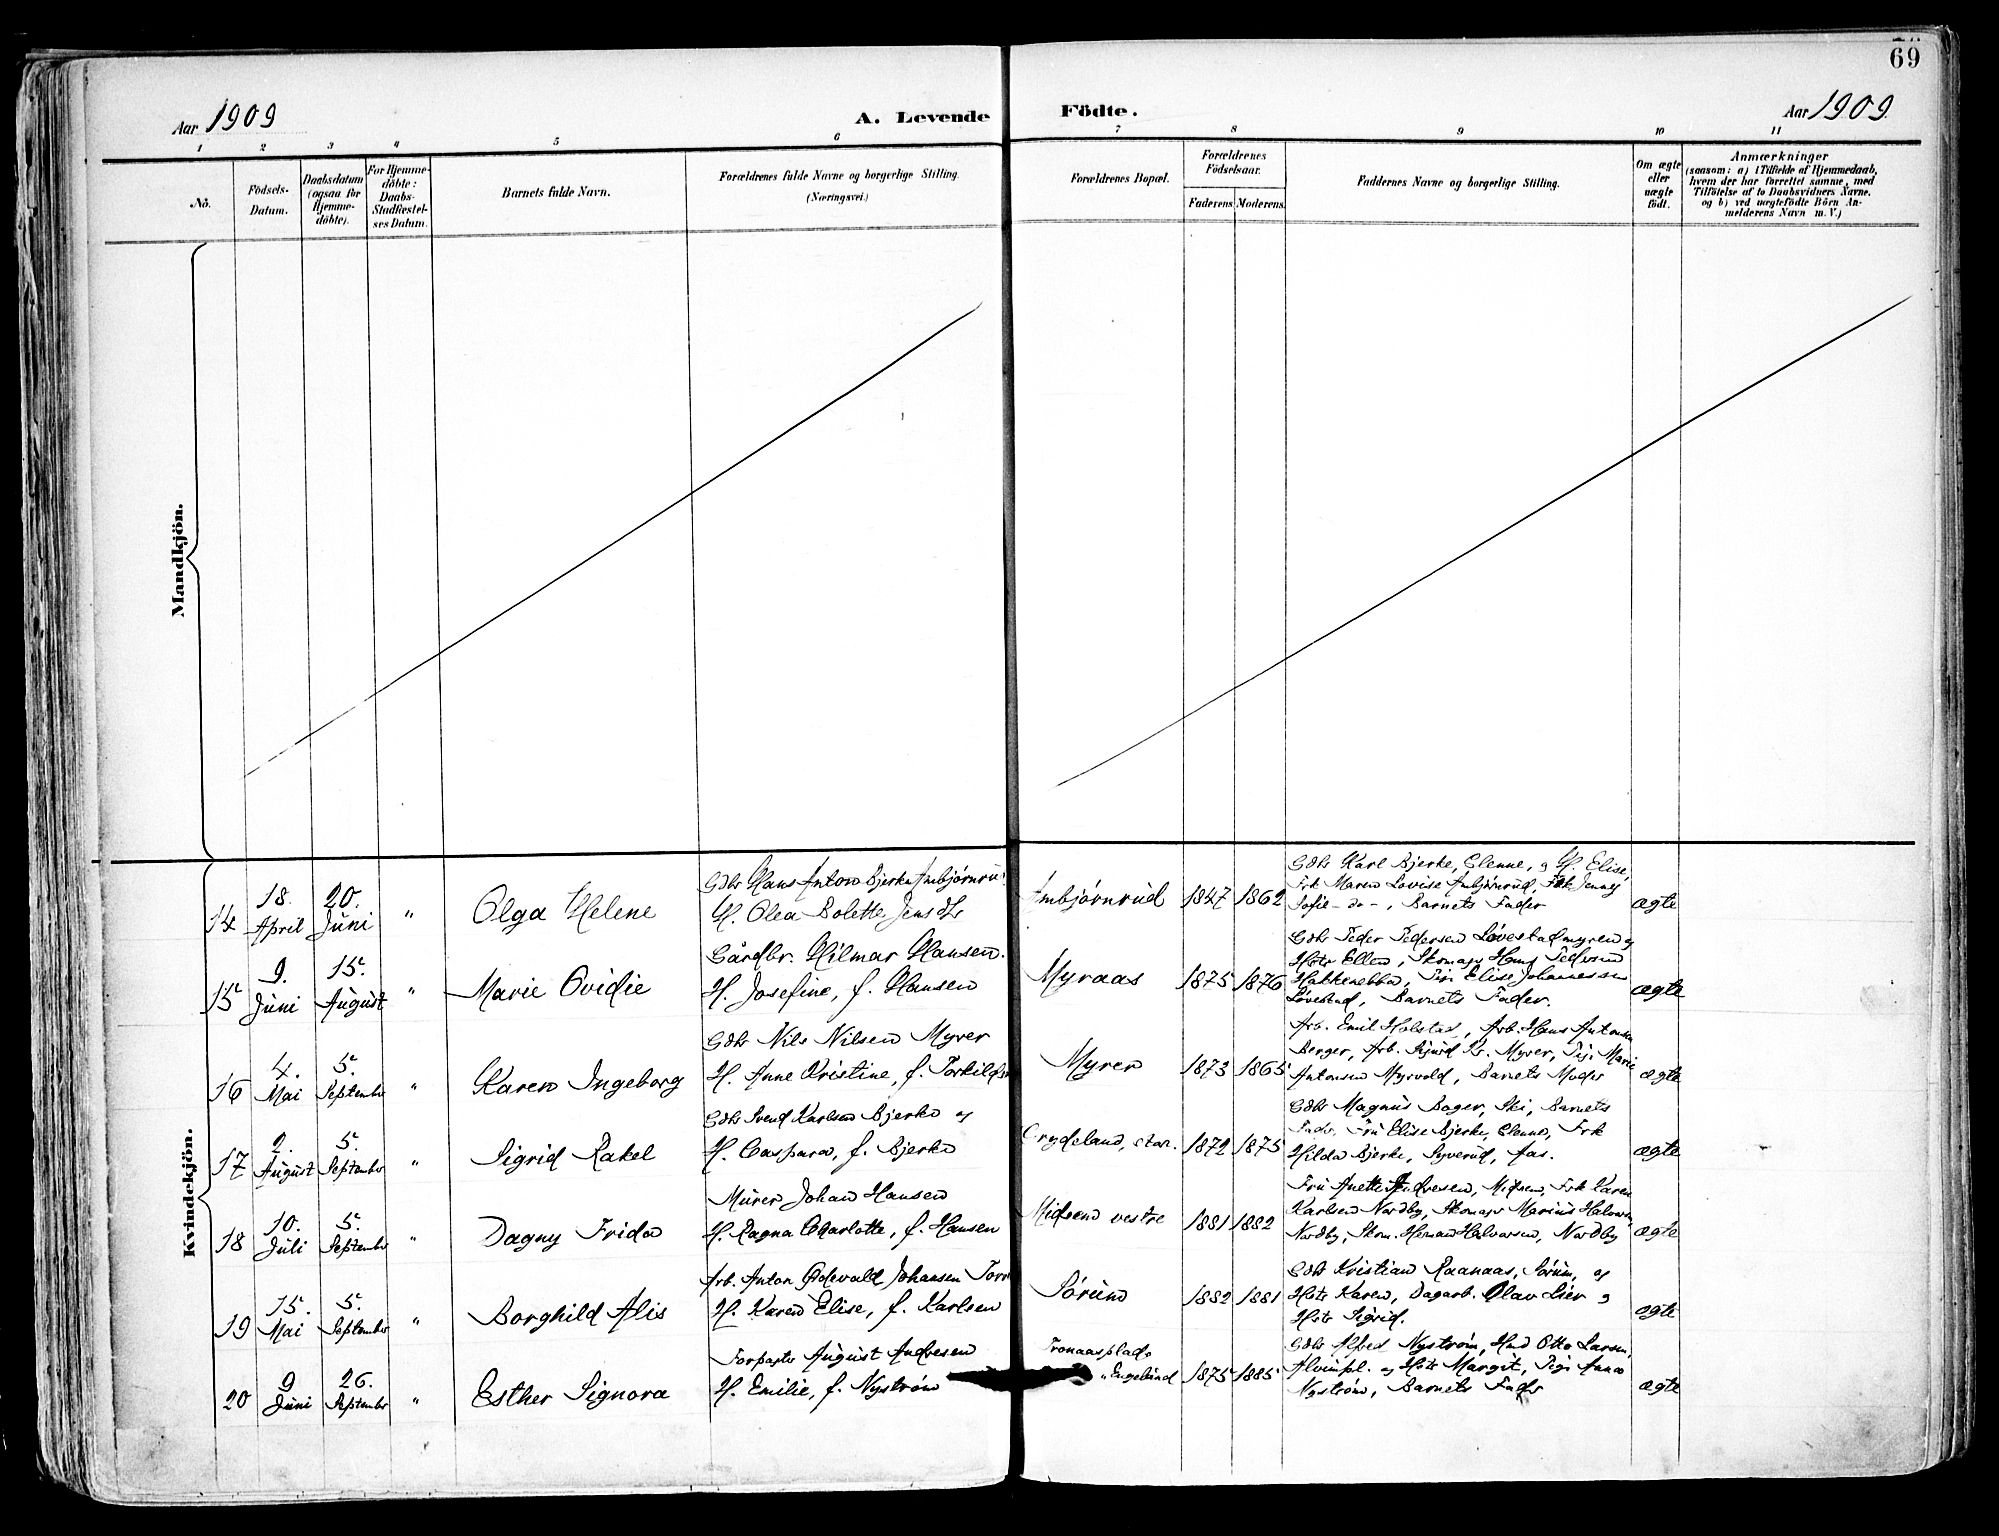 69
Aar 1909
A. Levende Födte.
Aar 1909.
1 2 3 4 5 6 7 8 9 10 11
No.
Födsels-
Datum.
Daabsdatum
(ogsaa for
Hjemme-
döbte).
For Hjemme-
döbte:
Daabs-
Stadfæstel-
ses Datum.
Barnets fulde Navn.
Forældrenes fulde Navne og borgerlige Stilling.
(Næringsvei.)
Forældrenes Bopæl.
Forældrenes
Födselsaar.
Faderens. Moderens.
Faddernes Navne og borgerlige Stilling.
Om ægte
eller
uægte
födt.
Anmærkninger
(saasom: a) i Tilfælde af Hjemmedaab,
hvem der har forrettet samme, med
Tilföielse af to Daabsvidners Navne.
og b) ved uægtefödte Börn An-
melderens Navn m. V.)
Mandkjön.
Kvindekjön.
14
18.
April
20.
Juni
"
Olga Helene
Gdbr Hans Anton Bjerke Ambjørnrud
H. Olea Bolette Jensdtr
Ambjørnrud
1847 1862
Gdbr Karl Bjerke, Glenne, og H. Elise,
Frk Maren Lovise Ambjørnrud, Frk Jenny
Sofie - do - , Barnets Fader
ægte
15
9.
Juni
15.
August
"
Marie Ovidie
Gårdbr. Hilmar Hansen.
H. Josefine, f. Hansen
Myraas
1875 1876
Gdbr Peder Pedersen Løvestadmyren og
Hstr Ellen, Skomager Hans
Hakkenebba, Pige Elise Johannessen
Løvestad, Barnets Fader.
ægte
16
4.
Mai
5.
September
"
Karen Ingeborg
Gdbr Nils Nilsen Myrer
H. Anne Kristine, f. Torkildsen
Myrer
1873 1865
Arb. Emil Holstad, Arb. Hans Antonsen
Berger, Arb. Sigurd Kr. Myrer, Pige Marie
Antonsen Myrvold, Barnets Moder
ægte
17
2.
August
5.
September
"
Sigrid Rakel
Gdbr Svend Karlsen Bjerke og
H. Caspara, f. Bjerke
Grydeland, stor.
1872 1875
Gdbr Magnus Bager, Ski, Barnets
Fader, Fru Elise Bjerke, Glenne, Frk
Hilda Bjerke, Syverud, Aas.
ægte
18
10.
Juli
5.
September
"
Dagny Frida
Murer Johan Hansen
H. Ragna Charlotte, f. Hansen
Midsem vestre
1881 1882
Fru Anette Andresen, Midsem, Frk Karen
Karlsen Nordby, Skomager Marius Halvorsen,
Nordby, Skom. Herman Halvorsen, Nordby
ægte
19
15.
Mai
5.
September
"
Borghild Alis
Arb. Anton Edevald Johansen
H. Karen Elise, f. Karlsen
Sørum
1882 1881
Gdbr Kristian Raanaas, Sørum, og
Hstr Karen, Dagarb. Olav Lier og
Hstr Sigrid.
ægte
20
9
Juni
26.
September
"
Esther Signora
Forpagter August Andresen
H. Emilie, f. Nyström
Tronaasplads
"Engelund
1875 1885
Gdbr Alfred Nyström, Hmd Otto Larsen,
Alvimpl. og Hstr Margit, Pige Anna
Nyström, Barnets Fader
ægte